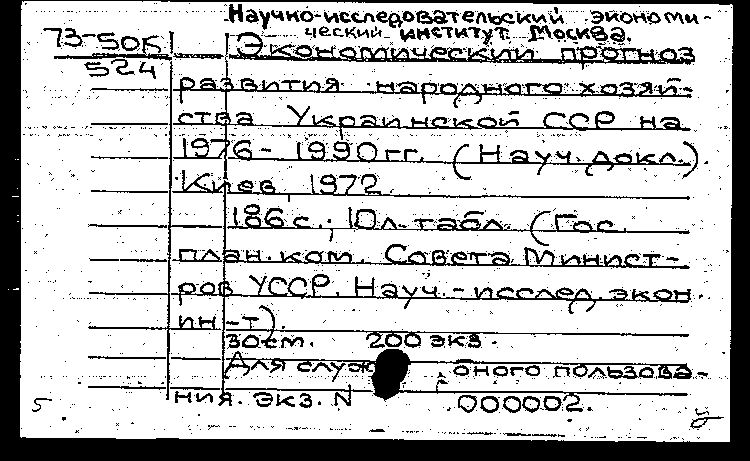 Научно-исследовательский экономи-
ческий институт. Москва.
73-50к Экономический прогноз
524
развития народного хозяй-
ства Украинской ССР на
1976- 1990гг. (Науч. докл.).
Киев, 1972.
186 с.; 10л. табл. (Гос.
план. ком. Совета Минист-
ров УССР. Науч.-исслед. экон.
ин-т).
30 см. 200 экз.
Для служ оного пользова-
ния. экз. N 000002.
5 у